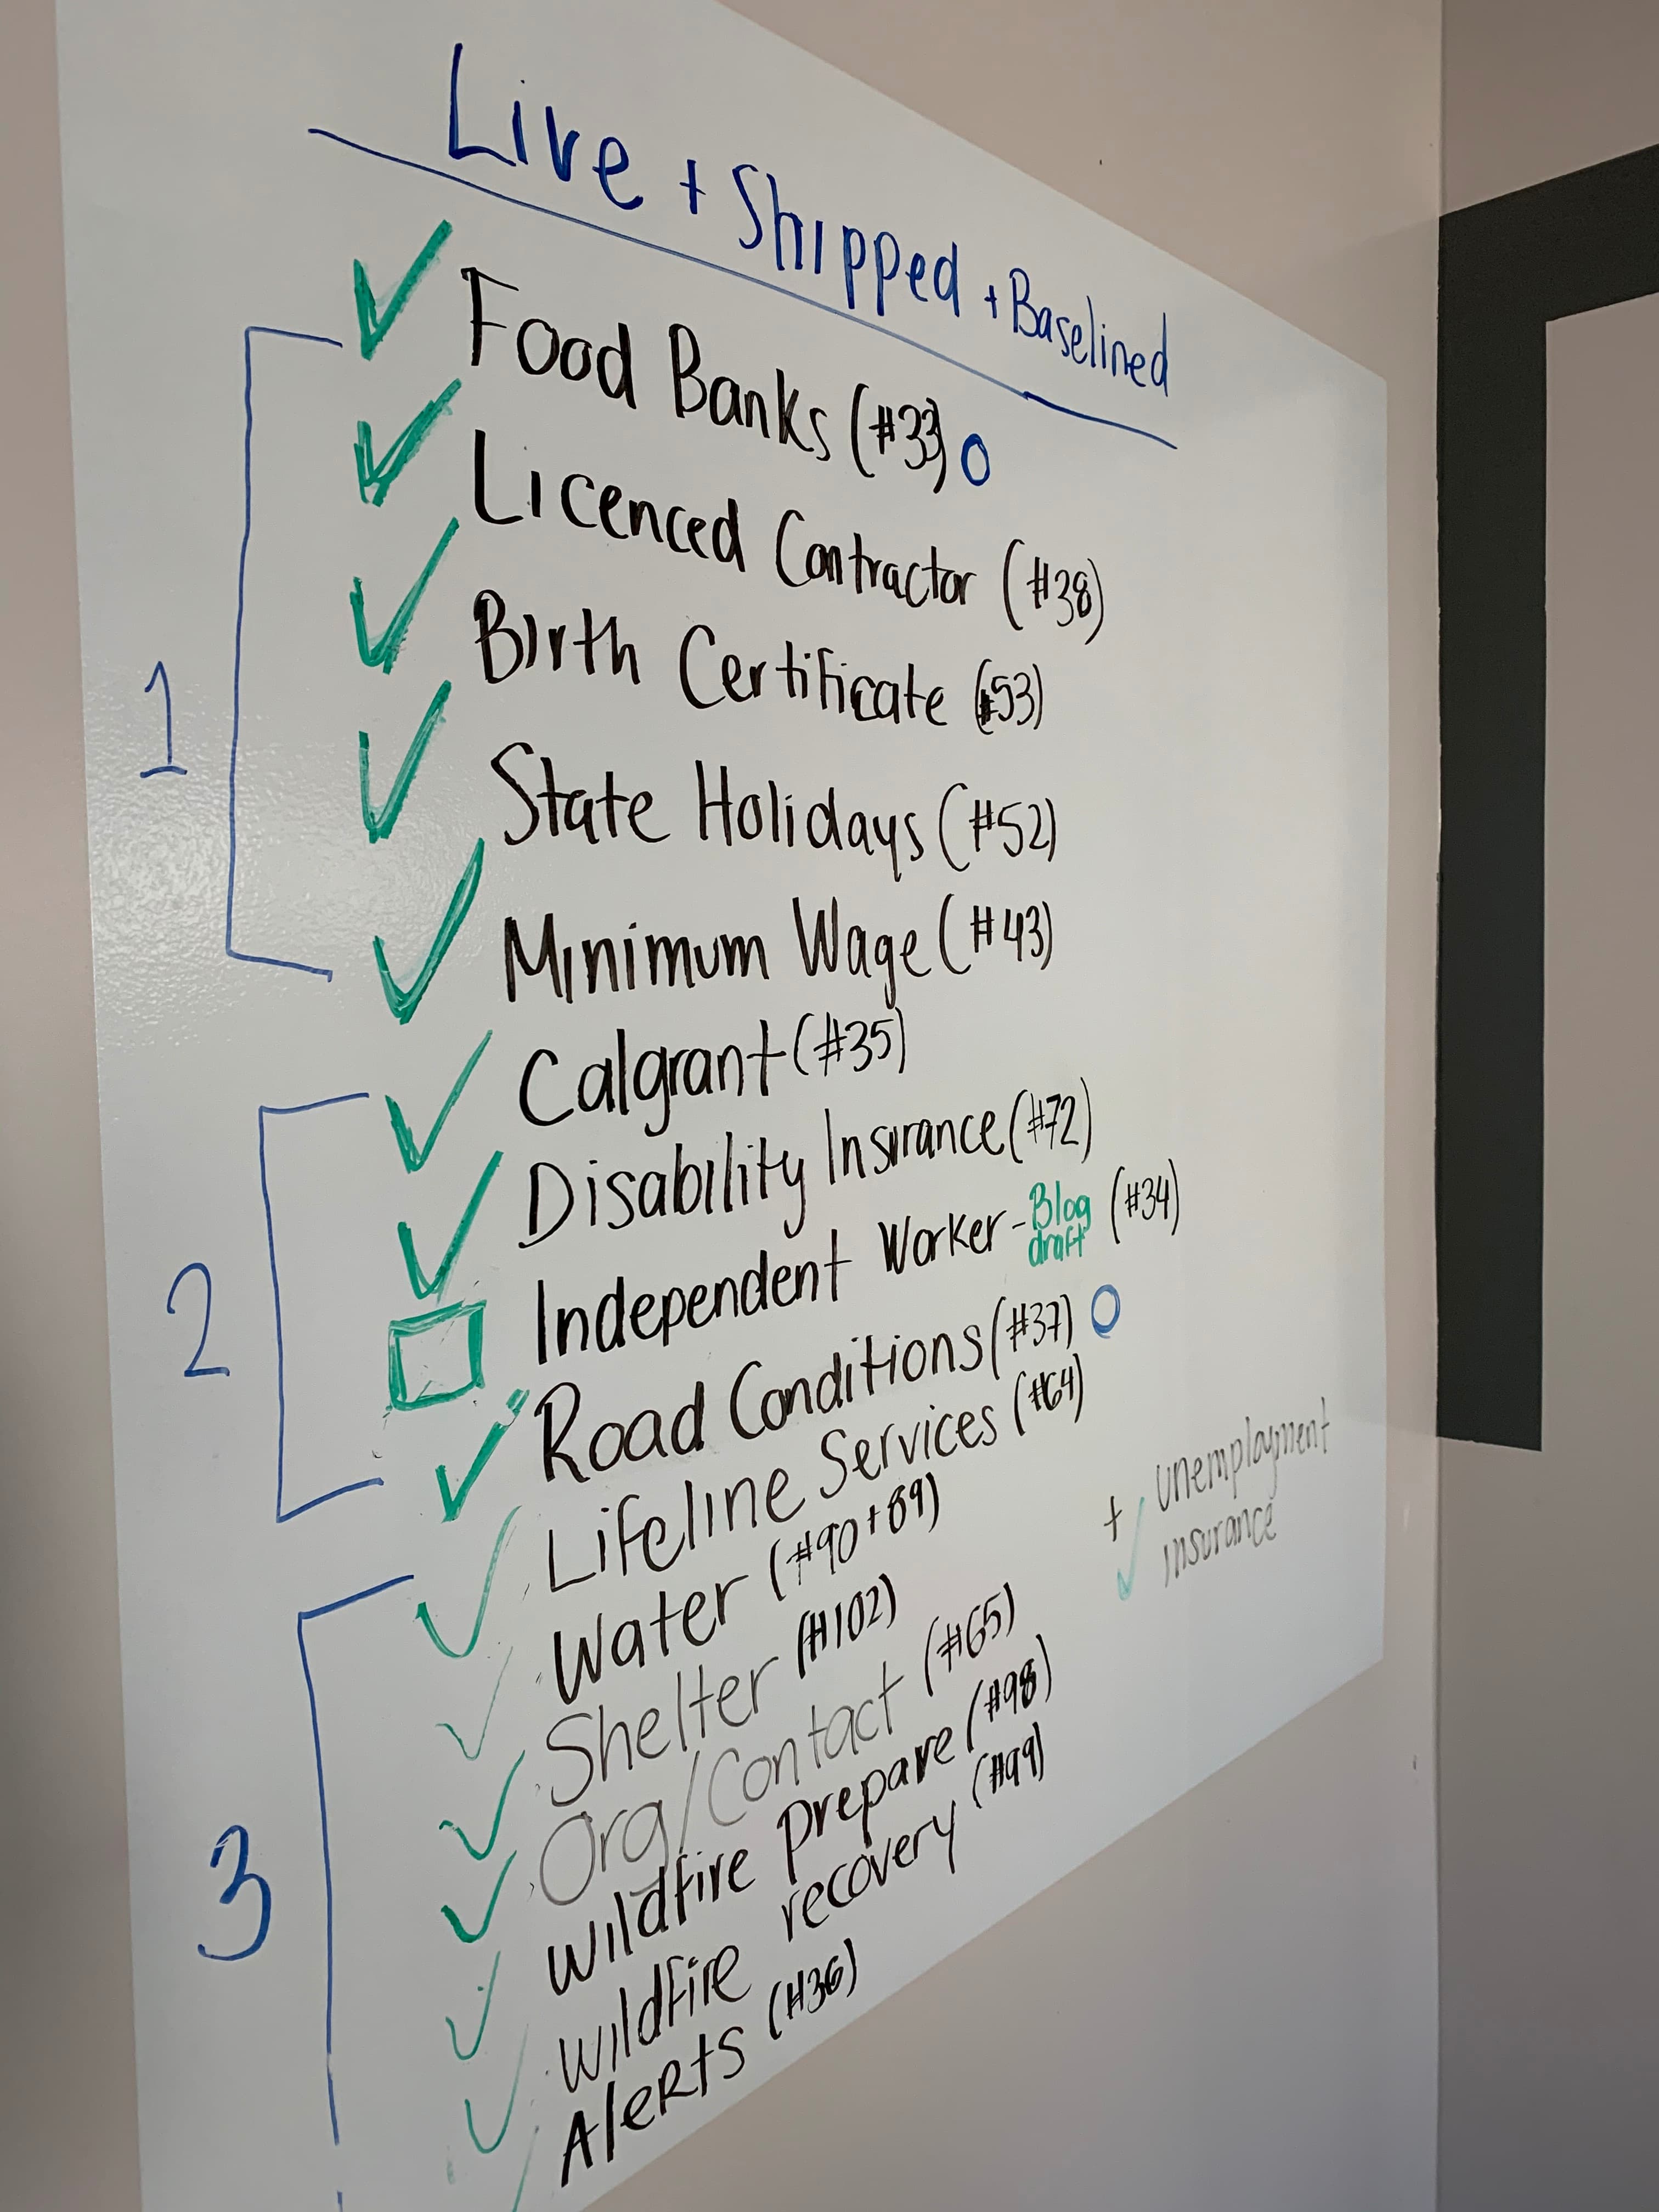 Live + Shipped + Baselined
Food Banks (#33)
Licenced Contractor (#38)
Birth Certificate (#53)
State Holidays (#52)
Minimum Wage (#43)
Calgrant (#35)
Disability Insurance (#72)
Independent Worker - Blog draft (#34)
Road Conditions (#37)
Lifeline Services (#64)
Water (#90 + 89)
Shelter (#102)
Org/Contact (#65)
Wildfire prepare (#98)
Wildfire recovery (#99)
Alerts (#36)
+ unemployment
insurance
1
2
3